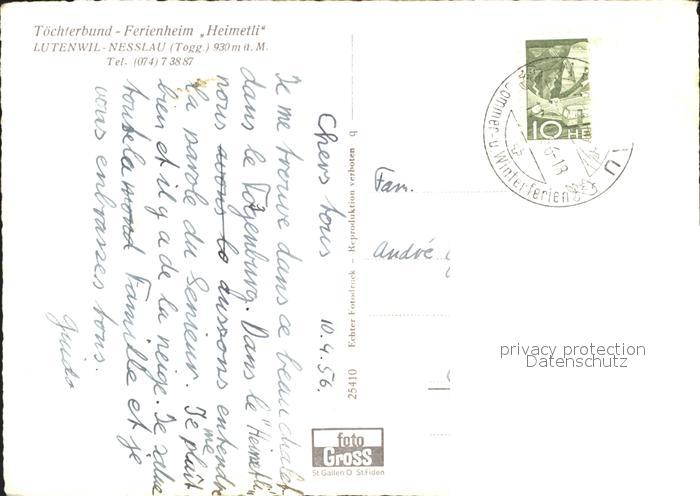 Töchterbund - Ferienheim „Heimetli“
LUTENWIL - NESSLAU (Togg.) 930 m ü. M.
Tel. (074) 7 38 87
Chers tous 10.4.56.
Je me trouve dans ce beau chalet
dans le Toggenburg. Dans le "Heimetli"
nous avons la aussons entendre
la parole du Senieur. Je me plaît
bien et il y a de la neige. Je salue
toute la mond Famille et je
vous enbrasses tous.
Guido
25410 Echter Fotodruck - Reproduktion verboten q
foto
Gross
St Gallen O St.Fiden
Fam.
André
10 HE
Sommer- u. Winterferien
privacy protection
Datenschutz